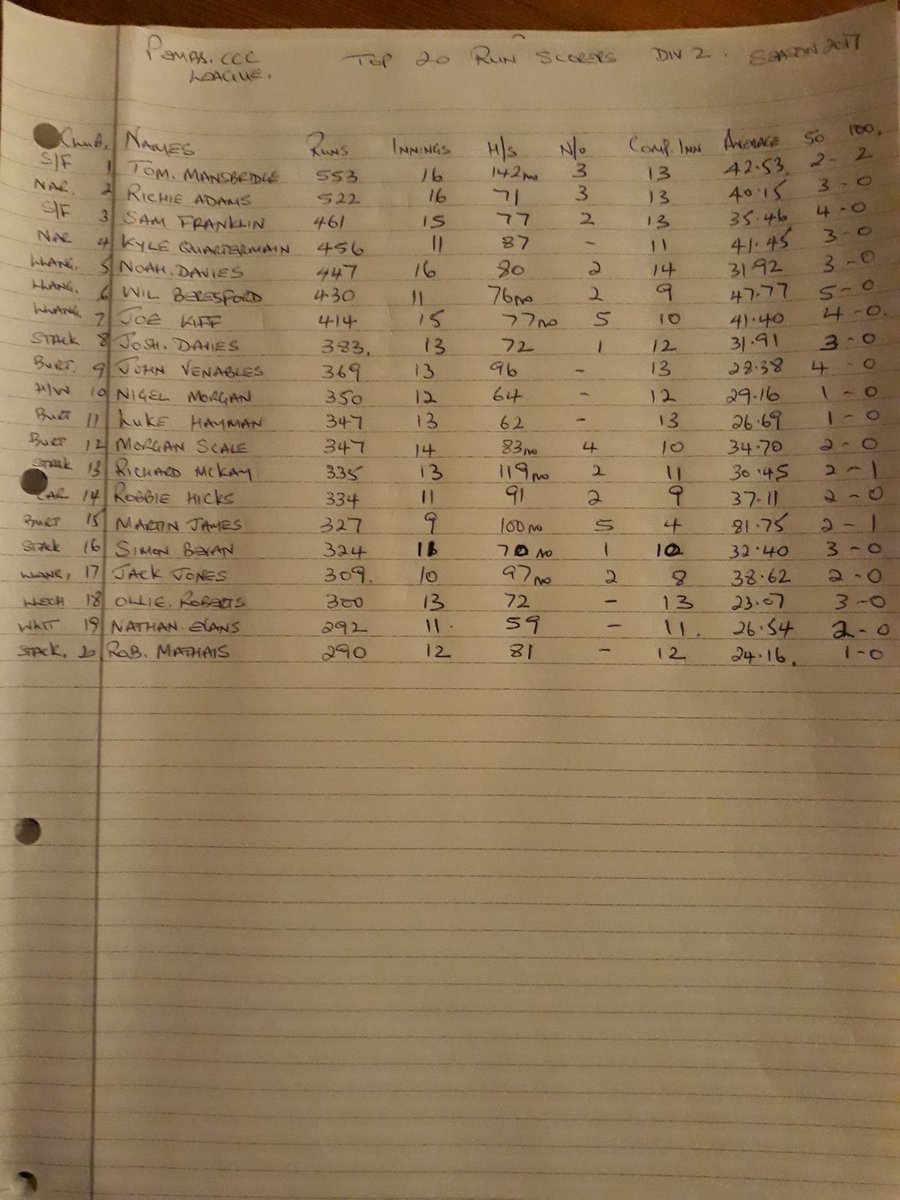 Pembs. CCC LEAGUE. TOP 20 RUN SCORERS DIV 2. SEASON 2017
CLUB. NAMES RUNS INNINGS H/S N/O COMP. INN AVERAGE 50 100.
S/F 1 TOM. MANSBRIDGE 553 16 142 no 3 13 42.53 2 - 2
NAR. 2 RICHIE ADAMS 522 16 71 3 13 40.15 3 - 0
S/F 3 SAM FRANKLIN 461 15 77 2 13 35.46 4 - 0
NAR 4 KYLE QUARTERMAIN 456 11 87 - 11 41.45 3 - 0
LLANG. 5 NOAH. DAVIES 447 16 80 2 14 31.92 3 - 0
LLANG. 6 WIL BERESFORD 430 11 76 no 2 9 47.77 5 - 0
LLANG. 7 JOE KIFF 414 15 77 no 5 10 41.40 4 - 0
STACK 8 JOSH. DAVIES 383. 13 72 1 12 31.91 3 - 0
BURT. 9 JOHN VENABLES 369 13 96 - 13 28.38 4 - 0
H/W 10 NIGEL MORGAN 350 12 64 - 12 29.16 1 - 0
BURT 11 LUKE HAYMAN 347 13 62 - 13 26.69 1 - 0
BURT 12 MORGAN SCALE 347 14 83 no 4 10 34.70 2 - 0
STACK 13 RICHARD MCKAY 335 13 119 no 2 11 30.45 2 - 1
CAR 14 ROBBIE HICKS 334 11 91 2 9 37.11 2 - 0
BURT 15 MARTIN JAMES 327 9 100 no 5 4 81.75 2 - 1
STACK 16 SIMON BEVAN 324 11 70 no 1 10 32.40 3 - 0
17 JACK JONES 309. 10 97 no 2 8 38.62 2 - 0
LLECH 18 OLLIE. ROBERTS 300 13 72 - 13 23.07 3 - 0
WHIT 19 NATHAN EVANS 292 11. 59 - 11. 26.54 2 - 0
STACK. 20 ROB. MATHAIS 290 12 81 - 12 24.16. 1 - 0